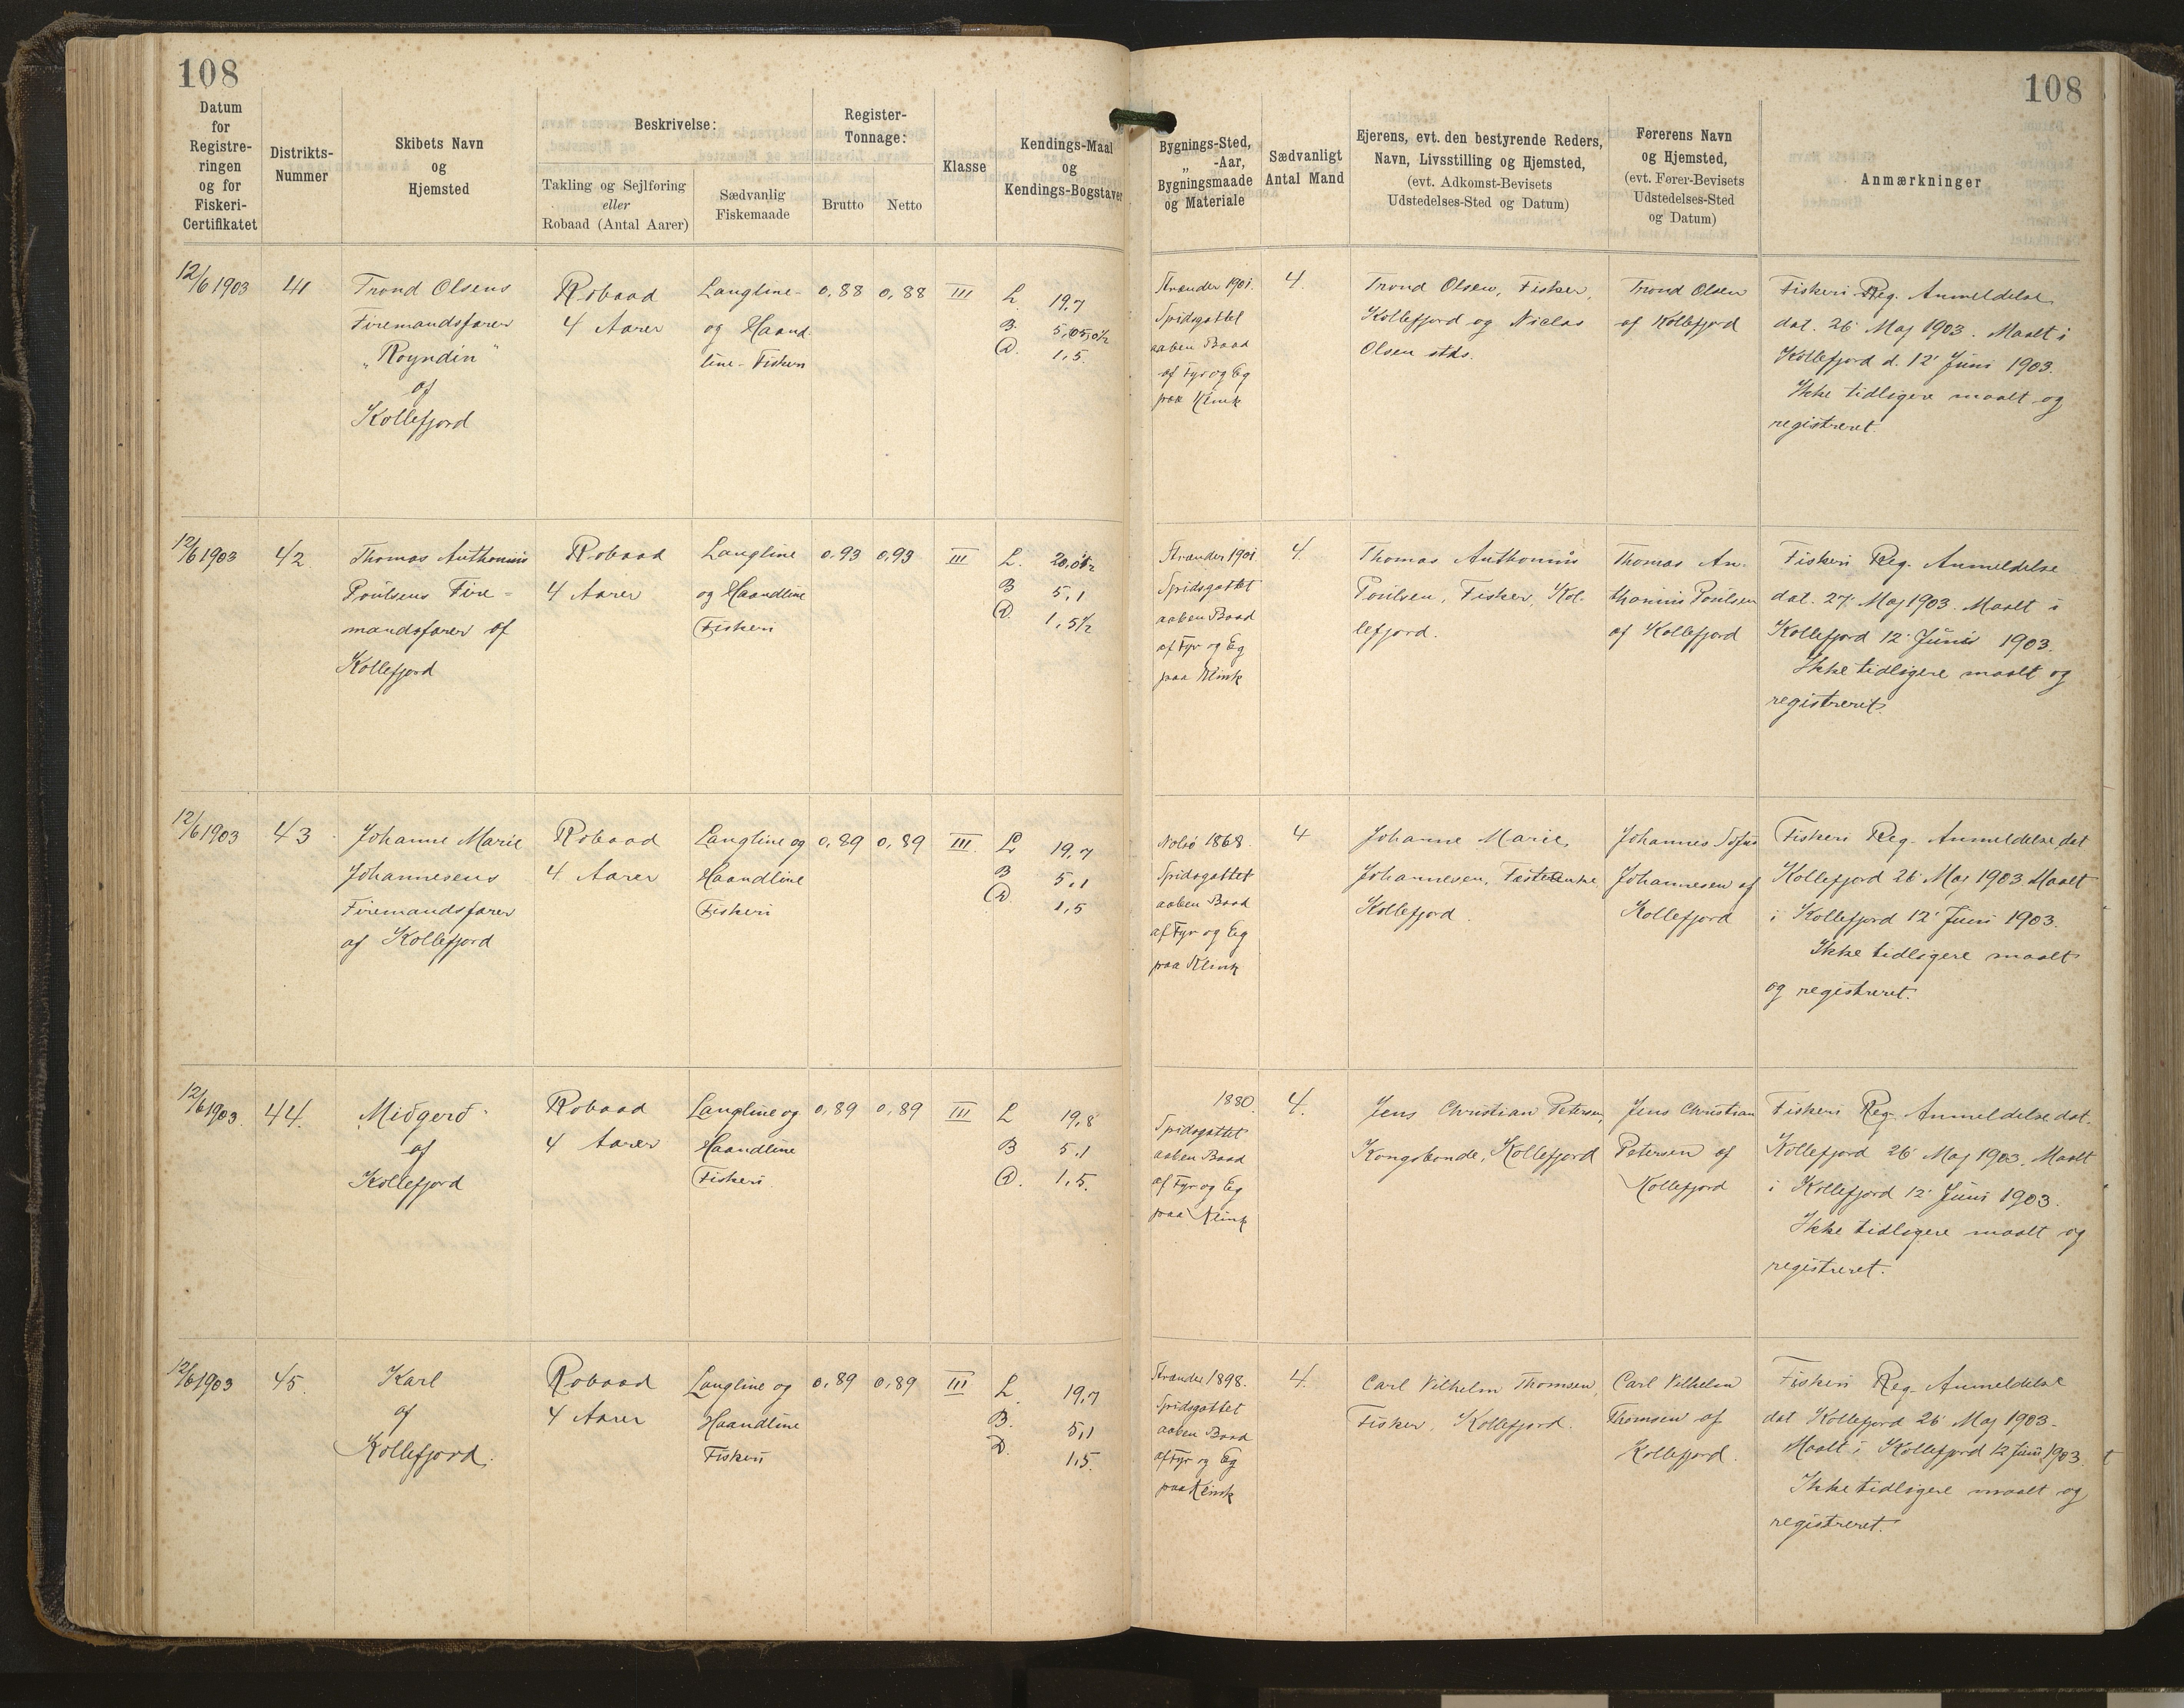 108
108
Datum
for
Registre-
ringen
og for
Fiskeri-
Certifikatet
Distrikts-
Nummer
Skibets Navn
og
Hjemsted
Beskrivelse:
Takling og Sejlføring
eller
Robaad (Antal Aarer)
Sædvanlig
Fiskemaade
Register-
Tonnage:
Brutto
Netto
Klasse
Kendings-Maal
og
Kendings-Bogstaver
Bygnings-Sted,
„ -Aar,
Bygningsmaade
og Materiale
Sædvanligt
Antal Mand
Ejerens, evt. den bestyrende Reders,
Navn, Livsstilling og Hjemsted,
(evt. Adkomst-Bevisets
Udstedelses-Sted og Datum)
Førerens Navn
og Hjemsted,
(evt. Fører-Bevisets
Udstedelses-Sted
og Datum)
Anmærkninger
12/6 1903
41
Trond Olsens
Firemandsfarer
„Royndin"
af
Kollefjord
Robaad
4 Aarer
Langline-
og Haand
line-Fiskeri
0,88
0,88
III
L. 19,7
B. 5,0½
D. 1,5.
Strænder 1901.
Spidsgattet
aaben Baad
af Fyr og Eg
paa Klink
4.
Trond Olsen, Fisker,
Kollefjord og Niclas
Olsen stds.
Trond Olsen
af Kollefjord
Fiskeri Reg. Anmeldelse
dat. 26' Maj 1903. Maalt i
Kollefjord d. 12' Juni 1903.
Ikke tidligere maalt og
registreret.
12/6 1903
42.
Thomas Anthonius
Poulsens Fire-
mandsfarer af
Kollefjord
Robaad
4 Aarer
Langline
og Haandline
Fiskeri
0,93
0,93
III
L.
B 5,1
D. 1,5½
Strænder 1901
Spidsgattet
aaben Baad
af Fyr og Eg
paa Klink
4.
Thomas Anthonius
Poulsen, Fisker, Kol-
lefjord.
Thomas An-
thonius Poulsen
af Kollefjord
Fiskeri Reg. Anmeldelse
dat. 27' Maj 1903. Maalt i
Kollefjord 12' Juni 1903.
Ikke tidligere maalt og
registreret.
12/6 1903
43
Johanne Marie
Johannesens
Firemandsfarer
af Kollefjord
Robaad
4 Aarer
Langline og
Haandline
Fiskeri
0,89
0,89
III.
L. 19,7
B 5,1
D. 1,5
Nolsø 1868.
Spidsgattet
aaben Baad
af Fyr og Eg
paa Klink
4
Johanne Marie
Johannesen,
Kollefjord.
Johannes Sofus
Johannesen af
Kollefjord
Fiskeri Reg. Anmeldelse dat
Kollefjord 26' Maj 1903 Maalt
i Kollefjord 12' Juni 1903.
Ikke tidligere maalt
og registreret.
12/6 1903.
44.
Miðgerð
af
Kollefjord
Robaad
4 Aarer
Langline og
Haandline
Fiskeri.
0,89
0,89
III
L 19,8
B 5,1
D. 1,5.
1880.
Spidsgattet
aaben Baad
af Fyr og Eg
paa Klink
4.
Jens Christian Petersen,
Kongsbonde, Kollefjord
Jens Christian
Petersen af
Kollefjord
Fiskeri Reg. Anmeldelse dat.
Kollefjord 26' Maj 1903. Maalt
i Kollefjord 12' Juni 1903.
Ikke tidligere maalt og
registreret.
12/6 1903
45.
Karl
af
Kollefjord.
Robaad
4 Aarer
Langline og
Haandline
Fiskeri
0,89
0,89
III
L. 19,7
B. 5,1
D. 1,5.
Strænder 1898.
Spidsgattet
aaben Baad
af Fyr og Eg
paa Klink
4.
Carl Vilhelm Thomsen,
Fisker, Kollefjord.
Carl Vilhelm
Thomsen af
Kollefjord.
Fiskeri Reg. Anmeldelse
dat Kollefjord 26' Maj 1903.
Maalt i Kollefjord 12 Juni 1903.
Ikke tidligere maalt og
registreret.